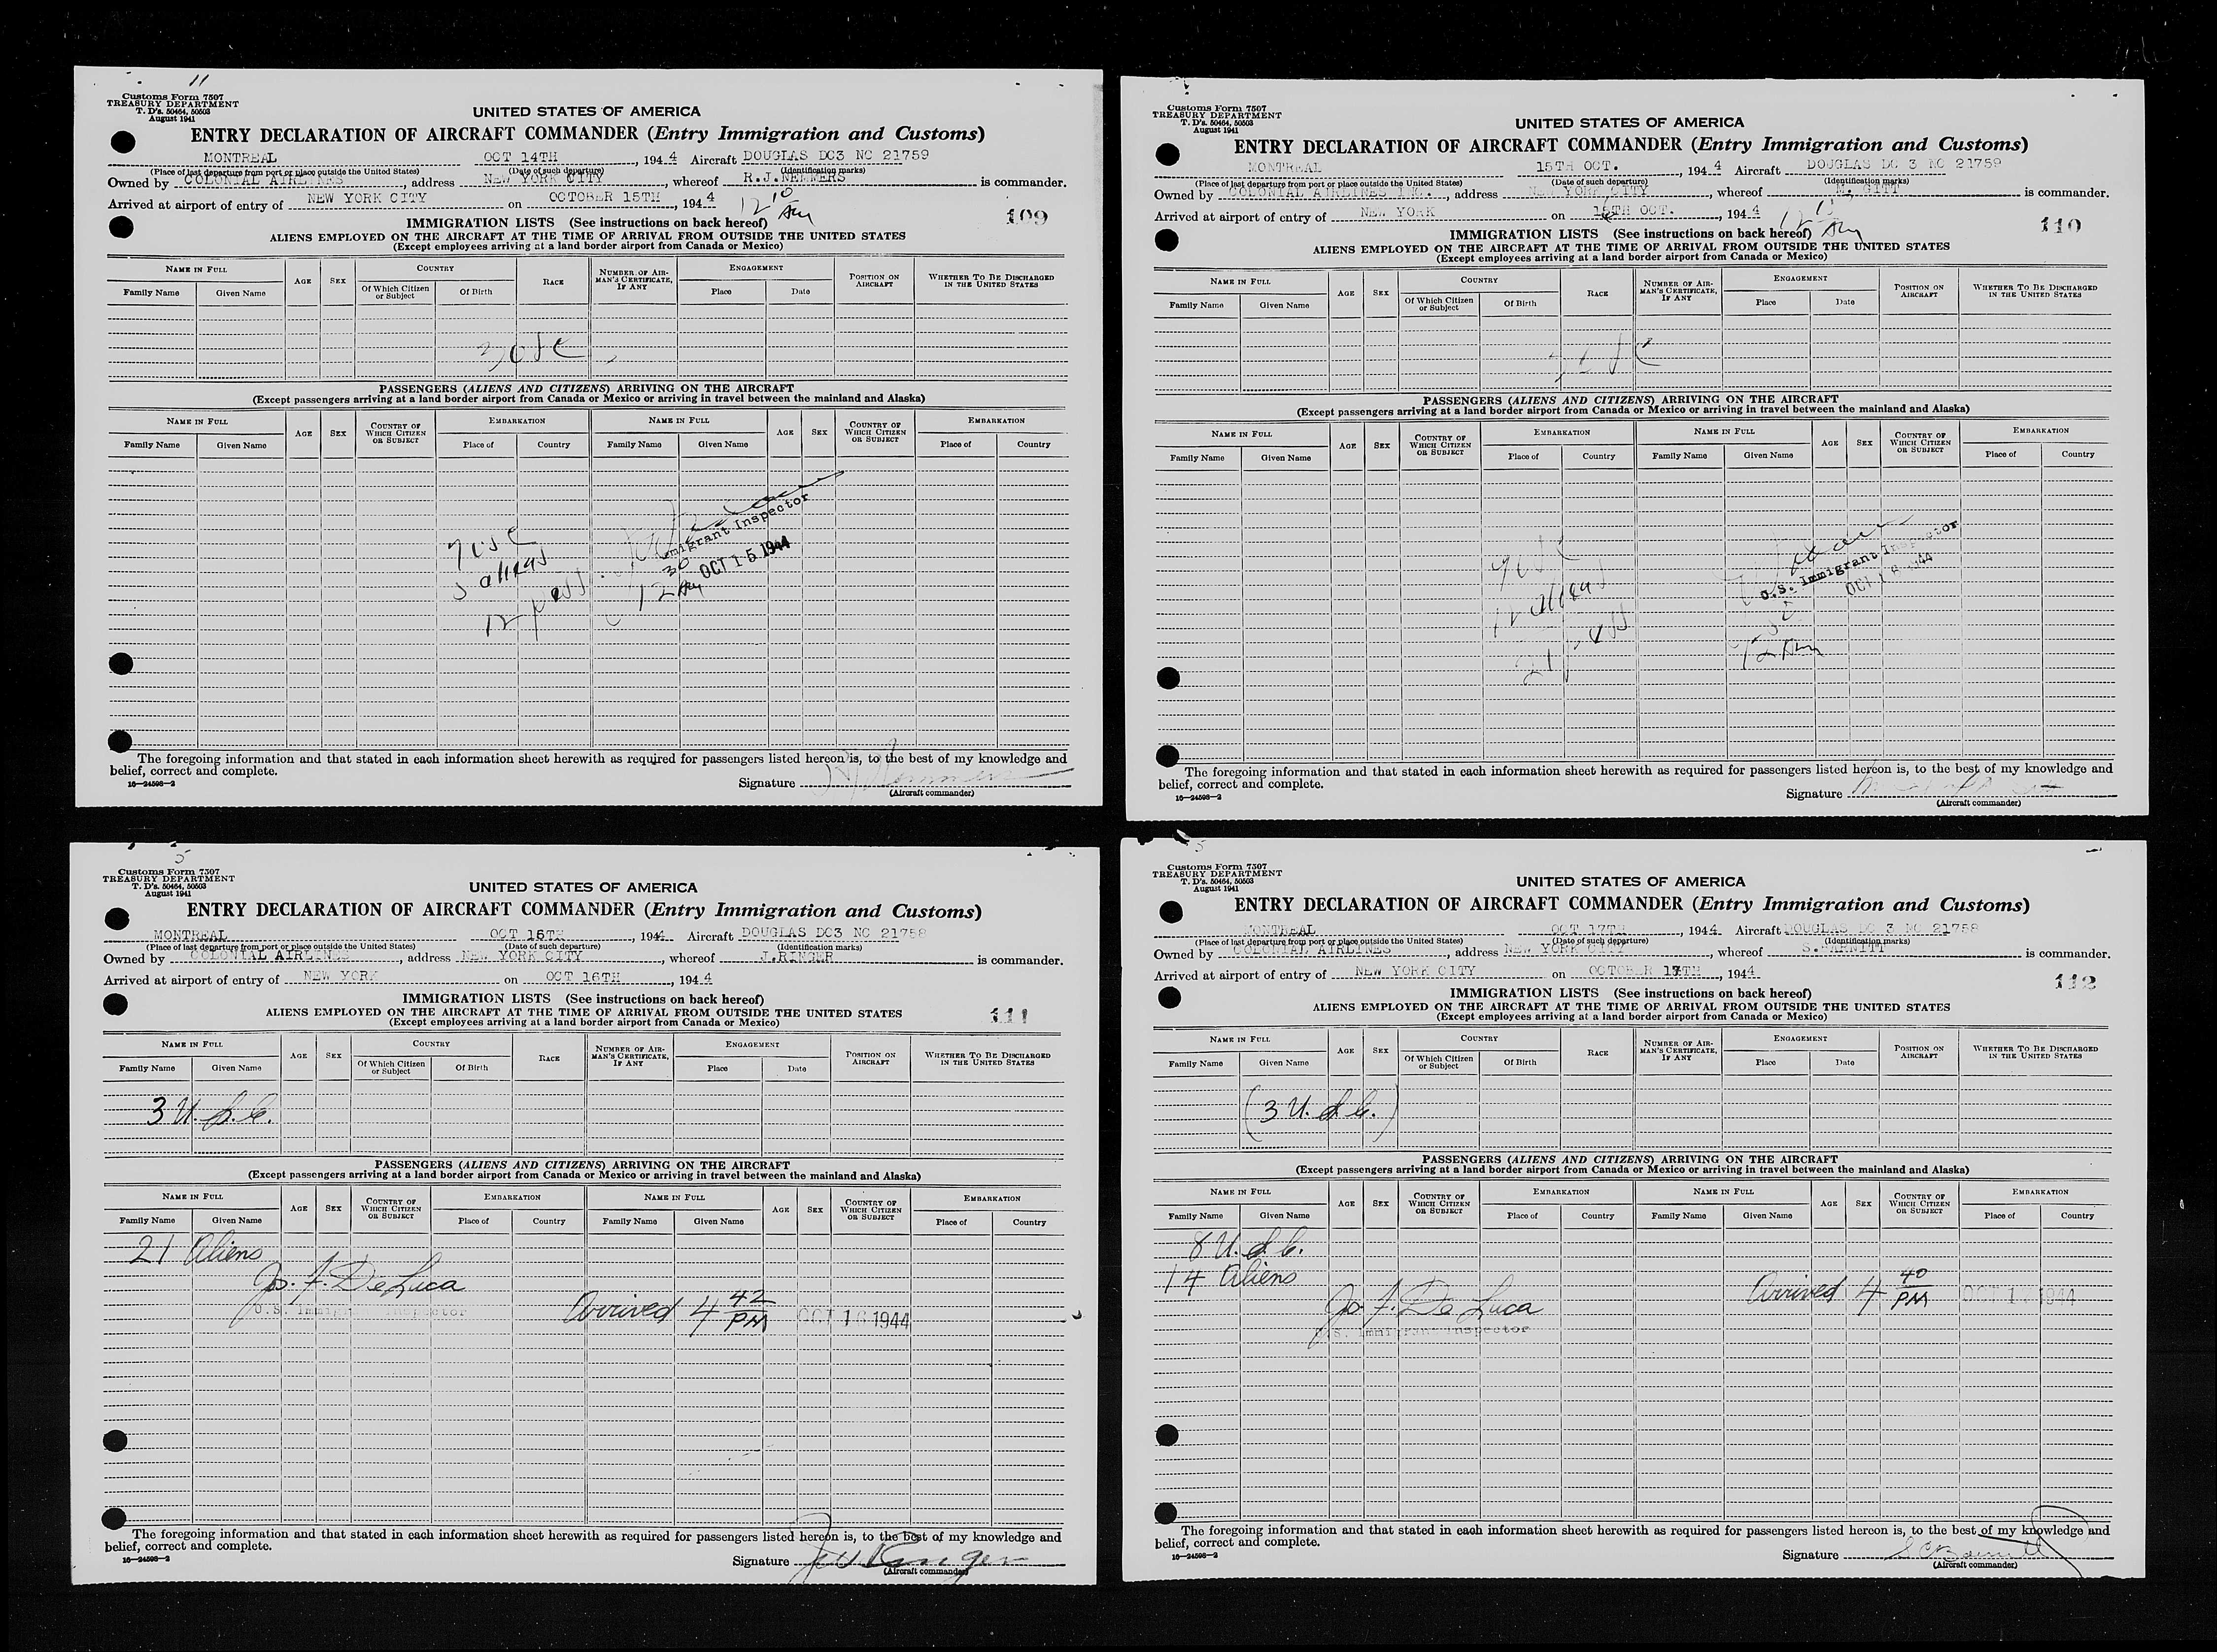 11
Customs Form 7507
TREASURY DEPARTMENT
T. D's. 50464, 50503
August 1941
UNITED STATES OF AMERICA
ENTRY DECLARATION OF AIRCRAFT COMMANDER (Entry Immigration and Customs)
MONTREAL OCT 14TH, 1944 Aircraft DOUGLAS DC3 NC 21759
(Place of last departure from port or place outside the United States) (Date of such departure) (Identification marks)
Owned by COLONIAL AIRLINES, address NEW YORK CITY, whereof R.J.NEMMERS is commander.
Arrived at airport of entry of NEW YORK CITY on OCTOBER 15TH, 1944 12 10 AM
109
IMMIGRATION LISTS (See instructions on back hereof)
ALIENS EMPLOYED ON THE AIRCRAFT AT THE TIME OF ARRIVAL FROM OUTSIDE THE UNITED STATES
(Except employees arriving at a land border airport from Canada or Mexico)
NAME IN FULL AGE SEX COUNTRY RACE NUMBER OF AIRMAN'S CERTIFICATE, IF ANY ENGAGEMENT POSITION ON AIRCRAFT WHETHER TO BE DISCHARGED IN THE UNITED STATES
Family Name Given Name Of Which Citizen or Subject Of Birth Place Date
3 USC
PASSENGERS (ALIENS AND CITIZENS) ARRIVING ON THE AIRCRAFT
(Except passengers arriving at a land border airport from Canada or Mexico or arriving in travel between the mainland and Alaska)
NAME IN FULL AGE SEX COUNTRY OF WHICH CITIZEN OR SUBJECT EMBARKATION NAME IN FULL AGE SEX COUNTRY OF WHICH CITIZEN OR SUBJECT EMBARKATION
Family Name Given Name Place of Country Family Name Given Name Place of Country
7 USC
5 aliens
12 pass
Immigrant Inspector
12 30 AM OCT 15 1944
The foregoing information and that stated in each information sheet herewith as required for passengers listed hereon is, to the best of my knowledge and
belief, correct and complete.
Signature R J Nemmers
(Aircraft commander)
16—24598—2
Customs Form 7507
TREASURY DEPARTMENT
T. D's. 50464, 50503
August 1941
UNITED STATES OF AMERICA
ENTRY DECLARATION OF AIRCRAFT COMMANDER (Entry Immigration and Customs)
MONTREAL 15TH OCT., 1944 Aircraft DOUGLAS DC 3 NC 21759
(Place of last departure from port or place outside the United States) (Date of such departure) (Identification marks)
Owned by COLONIAL AIRLINES INC., address NEW YORK CITY, whereof M. GITT is commander.
Arrived at airport of entry of NEW YORK on 16TH OCT., 1944 12 AM
110
IMMIGRATION LISTS (See instructions on back hereof)
ALIENS EMPLOYED ON THE AIRCRAFT AT THE TIME OF ARRIVAL FROM OUTSIDE THE UNITED STATES
(Except employees arriving at a land border airport from Canada or Mexico)
NAME IN FULL AGE SEX COUNTRY RACE NUMBER OF AIRMAN'S CERTIFICATE, IF ANY ENGAGEMENT POSITION ON AIRCRAFT WHETHER TO BE DISCHARGED IN THE UNITED STATES
Family Name Given Name Of Which Citizen or Subject Of Birth Place Date
3 USC
PASSENGERS (ALIENS AND CITIZENS) ARRIVING ON THE AIRCRAFT
(Except passengers arriving at a land border airport from Canada or Mexico or arriving in travel between the mainland and Alaska)
NAME IN FULL AGE SEX COUNTRY OF WHICH CITIZEN OR SUBJECT EMBARKATION NAME IN FULL AGE SEX COUNTRY OF WHICH CITIZEN OR SUBJECT EMBARKATION
Family Name Given Name Place of Country Family Name Given Name Place of Country
9 USC
12 aliens
21 pass
U.S. Immigrant Inspector
OCT 16 1944
12 AM
The foregoing information and that stated in each information sheet herewith as required for passengers listed hereon is, to the best of my knowledge and
belief, correct and complete.
Signature
(Aircraft commander)
16—24598—2
5
Customs Form 7507
TREASURY DEPARTMENT
T. D's. 50464, 50503
August 1941
UNITED STATES OF AMERICA
ENTRY DECLARATION OF AIRCRAFT COMMANDER (Entry Immigration and Customs)
MONTREAL OCT 16TH, 1944 Aircraft DOUGLAS DC3 NC 21758
(Place of last departure from port or place outside the United States) (Date of such departure) (Identification marks)
Owned by COLONIAL AIRLINES, address NEW YORK CITY, whereof J.RINGER is commander.
Arrived at airport of entry of NEW YORK on OCT 16TH, 1944
IMMIGRATION LISTS (See instructions on back hereof)
111
ALIENS EMPLOYED ON THE AIRCRAFT AT THE TIME OF ARRIVAL FROM OUTSIDE THE UNITED STATES
(Except employees arriving at a land border airport from Canada or Mexico)
NAME IN FULL AGE SEX COUNTRY RACE NUMBER OF AIRMAN'S CERTIFICATE, IF ANY ENGAGEMENT POSITION ON AIRCRAFT WHETHER TO BE DISCHARGED IN THE UNITED STATES
Family Name Given Name Of Which Citizen or Subject Of Birth Place Date
3 U.S.C.
PASSENGERS (ALIENS AND CITIZENS) ARRIVING ON THE AIRCRAFT
(Except passengers arriving at a land border airport from Canada or Mexico or arriving in travel between the mainland and Alaska)
NAME IN FULL AGE SEX COUNTRY OF WHICH CITIZEN OR SUBJECT EMBARKATION NAME IN FULL AGE SEX COUNTRY OF WHICH CITIZEN OR SUBJECT EMBARKATION
Family Name Given Name Place of Country Family Name Given Name Place of Country
21 Aliens
Jo. F. De Luca
U.S. Immigrant Inspector
Arrived 4 42 PM OCT 16 1944
The foregoing information and that stated in each information sheet herewith as required for passengers listed hereon is, to the best of my knowledge and
belief, correct and complete.
Signature J W Ringer
(Aircraft commander)
16—24598—2
5
Customs Form 7507
TREASURY DEPARTMENT
T. D's. 50464, 50503
August 1941
UNITED STATES OF AMERICA
ENTRY DECLARATION OF AIRCRAFT COMMANDER (Entry Immigration and Customs)
MONTREAL OCT 17TH, 1944 Aircraft DOUGLAS DC 3 NC 21758
(Place of last departure from port or place outside the United States) (Date of such departure) (Identification marks)
Owned by COLONIAL AIRLINES, address NEW YORK CITY, whereof S.BARNITT is commander.
Arrived at airport of entry of NEW YORK CITY on OCTOBER 17TH, 1944
112
IMMIGRATION LISTS (See instructions on back hereof)
ALIENS EMPLOYED ON THE AIRCRAFT AT THE TIME OF ARRIVAL FROM OUTSIDE THE UNITED STATES
(Except employees arriving at a land border airport from Canada or Mexico)
NAME IN FULL AGE SEX COUNTRY RACE NUMBER OF AIRMAN'S CERTIFICATE, IF ANY ENGAGEMENT POSITION ON AIRCRAFT WHETHER TO BE DISCHARGED IN THE UNITED STATES
Family Name Given Name Of Which Citizen or Subject Of Birth Place Date
(3 U.S.C.)
PASSENGERS (ALIENS AND CITIZENS) ARRIVING ON THE AIRCRAFT
(Except passengers arriving at a land border airport from Canada or Mexico or arriving in travel between the mainland and Alaska)
NAME IN FULL AGE SEX COUNTRY OF WHICH CITIZEN OR SUBJECT EMBARKATION NAME IN FULL AGE SEX COUNTRY OF WHICH CITIZEN OR SUBJECT EMBARKATION
Family Name Given Name Place of Country Family Name Given Name Place of Country
8 U.S.C.
14 Aliens
Jo. F. De Luca
U.S. Immigrant Inspector
Arrived 4 40 PM OCT 17 1944
The foregoing information and that stated in each information sheet herewith as required for passengers listed hereon is, to the best of my knowledge and
belief, correct and complete.
Signature S C Barnitt
(Aircraft commander)
16—24598—2